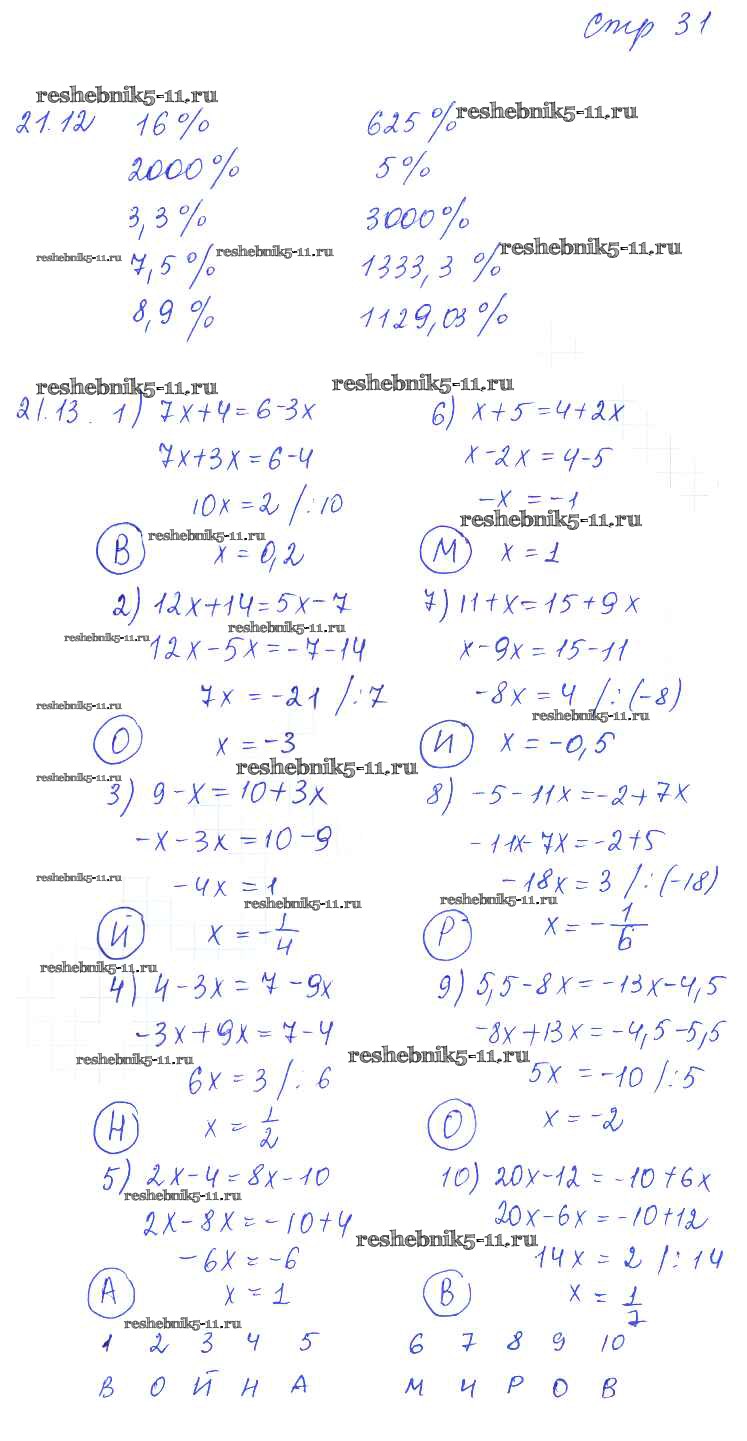 Стр 31
reshebnik5-11.ru
21.12 16% 625% reshebnik5-11.ru
2000% 5%
3,3% 3000%
reshebnik5-11.ru 7,5% reshebnik5-11.ru 1333,3% reshebnik5-11.ru
8,9% 1129,03%
reshebnik5-11.ru reshebnik5-11.ru
21.13. 1) 7x+4=6-3x
7x+3x=6-4
10x=2 /:10
reshebnik5-11.ru
В x=0,2
2) 12x+14=5x-7
reshebnik5-11.ru
reshebnik5-11.ru 12x-5x=-7-14
reshebnik5-11.ru 7x=-21 /:7
О x=-3
reshebnik5-11.ru
reshebnik5-11.ru
3) 9-x=10+3x
-x-3x=10-9
reshebnik5-11.ru -4x=1
reshebnik5-11.ru
Й x=-1/4
reshebnik5-11.ru
4) 4-3x=7-9x
-3x+9x=7-4
reshebnik5-11.ru
6x=3 /:6
Н x=1/2
5) 2x-4=8x-10
reshebnik5-11.ru
2x-8x=-10+4
-6x=-6
А x=1
reshebnik5-11.ru
6) x+5=4+2x
x-2x=4-5
-x=-1
reshebnik5-11.ru
М x=1
7) 11+x=15+9x
x-9x=15-11
-8x=4 /:(-8)
reshebnik5-11.ru
И x=-0,5
8) -5-11x=-2+7x
-11x-7x=-2+5
-18x=3 /:(-18)
reshebnik5-11.ru
Р x=-1/6
9) 5,5-8x=-13x-4,5
-8x+13x=-4,5-5,5
reshebnik5-11.ru
5x=-10 /:5
О x=-2
10) 20x-12=-10+6x
20x-6x=-10+12
reshebnik5-11.ru
14x=2 /:14
В x=1/7
1 2 3 4 5 6 7 8 9 10
В О Й Н А М И Р О В